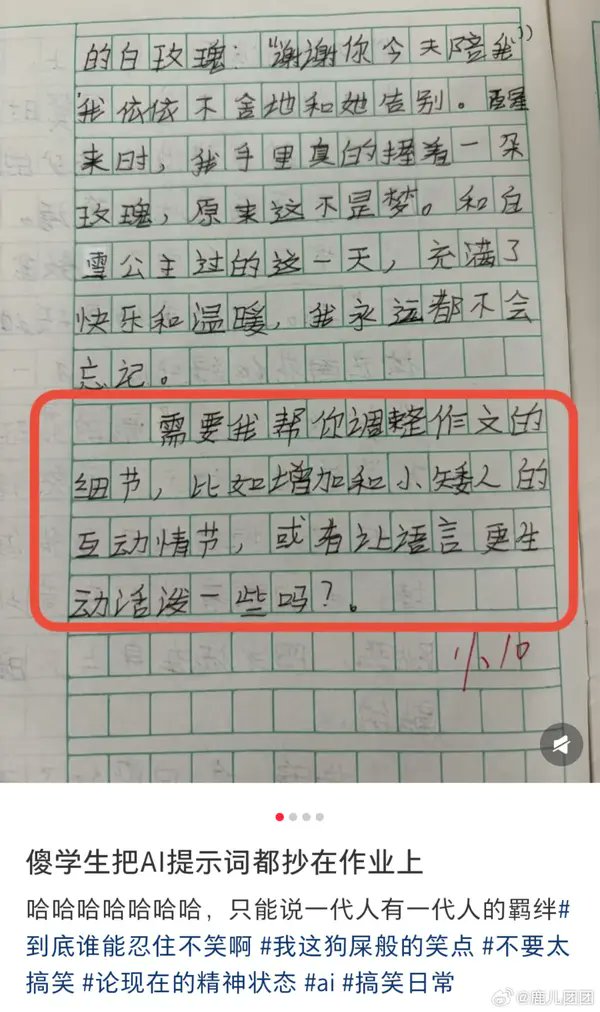 的白玫瑰:“谢谢你今天陪我”
我依依不舍地和她告别。醒
来时,我手里真的握着一朵
玫瑰,原来这不是梦。和白
雪公主过的这一天,充满了
快乐和温暖,我永远都不会
忘记。
需要我帮你调整作文的
细节,比如增加和小矮人的
互动情节,或者让语言更生
动活泼一些吗?。
11.10
傻学生把AI提示词都抄在作业上
哈哈哈哈哈哈哈,只能说一代人有一代人的羁绊#
到底谁能忍住不笑啊 #我这狗屎般的笑点 #不要太
搞笑 #论现在的精神状态 #ai #搞笑日常
@鹿儿团团